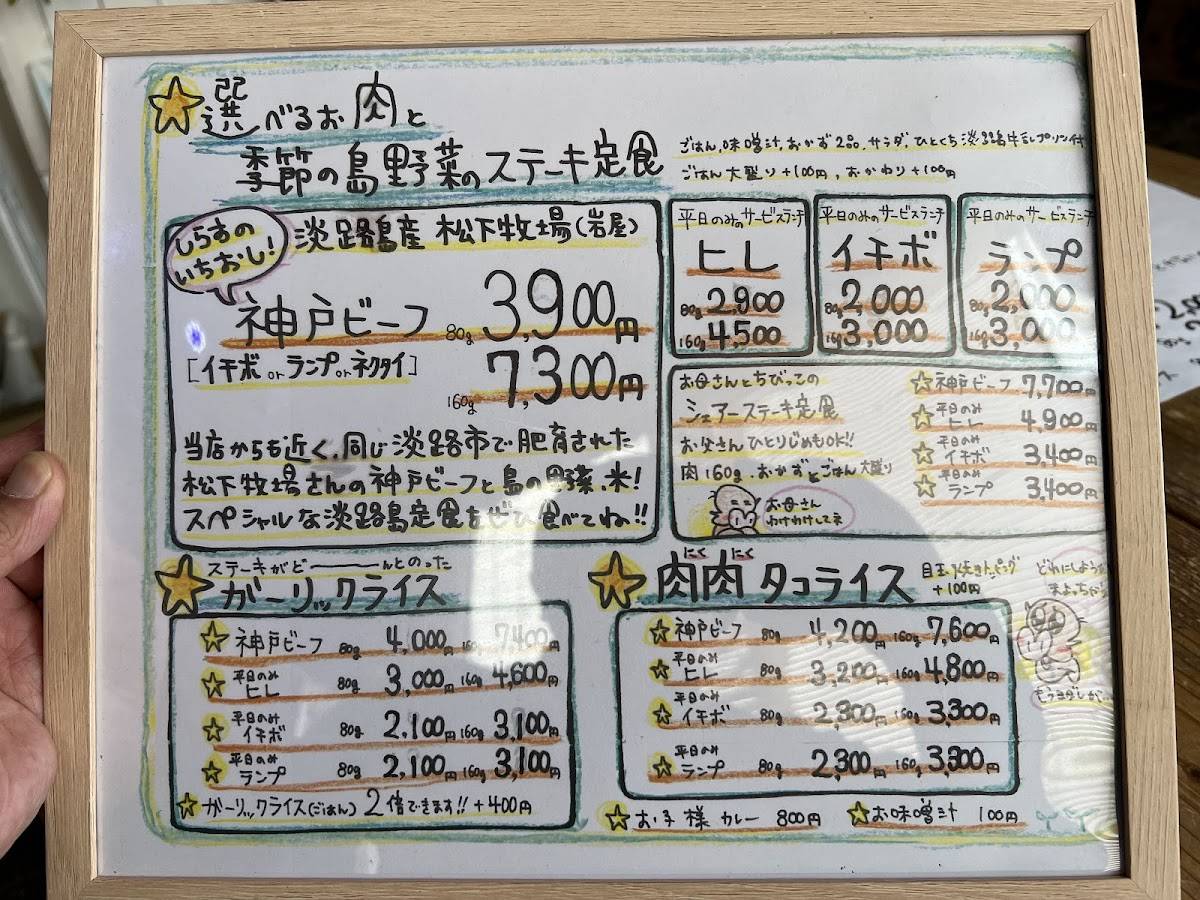 選べるお肉と
季節の島野菜のステーキ定食
ごはん、味噌汁、おかず2品、サラダ、ひとくち淡路牛乳プリン付
ごはん大盛り+100円、おかわり+100円
しらすの
いちおし!
淡路島産 松下牧場(岩屋)
神戸ビーフ 80g 3,900円
[イチボorランプorネクタイ]
160g 7,300円
当店からも近く、同じ淡路市で肥育された
松下牧場さんの神戸ビーフと島の野菜、米!
スペシャルな淡路島定食をぜひ食べてね!!
平日のみのサービスランチ
ヒレ
80g 2,900
160g 4,500
平日のみのサービスランチ
イチボ
80g 2,000
160g 3,000
平日のみのサービスランチ
ランプ
80g 2,000
160g 3,000
お母さんとちびっこの
シェアーステーキ定食
お父さんひとりじめもOK!!
肉160g、おかずとごはん大盛り
お母さん
わけわけしてネ
神戸ビーフ 7,700円
平日のみ
ヒレ 4,900
平日のみ
イチボ 3,400円
平日のみ
ランプ 3,400
ステーキがどーんとのった
ガーリックライス
神戸ビーフ 80g 4,000円 160g 7,400円
平日のみ
ヒレ 80g 3,000円 160g 4,600円
平日のみ
イチボ 80g 2,100円 160g 3,100円
平日のみ
ランプ 80g 2,100円 160g 3,100円
ガーリックライス(ごはん)2倍できます!!+400円
にく にく
肉肉タコライス
目玉焼きトッピング
+100円
神戸ビーフ 80g 4,200円 160g 7,600円
平日のみ
ヒレ 80g 3,200円 160g 4,800円
平日のみ
イチボ 80g 2,300円 160g 3,300円
平日のみ
ランプ 80g 2,300円 160g 3,300円
どれにしようか
まよっちゃう
お子様カレー 800円
お味噌汁 100円